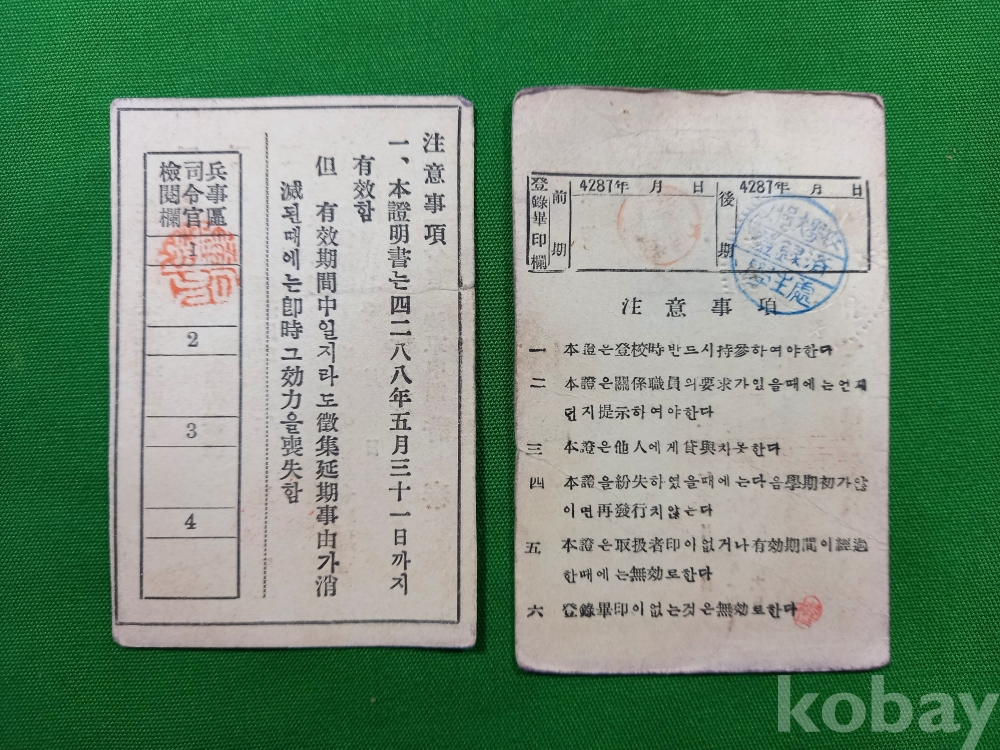 注意事項
一、本證明書는四二八八年五月三十一日까지
有效함
但 有效期間中일지라도徵集延期事由가消
滅된때에는卽時그効力을喪失함
兵事區
司令官
檢閱欄
1
2
3
4
登錄畢印欄
前期
4287年 月 日
後期
4287年 月 日
學生處
注意事項
一 本證은登校時반드시持參하여야한다
二 本證은關係職員의要求가있을때에는언제
던지提示하여야한다
三 本證은他人에게貸與치못한다
四 本證을紛失하였을때에는다음學期初가않
이면再發行치않는다
五 本證은取扱者印이없거나有効期間이經過
한때에는無効로한다
六 登錄畢印이없는것은無効로한다
kobay